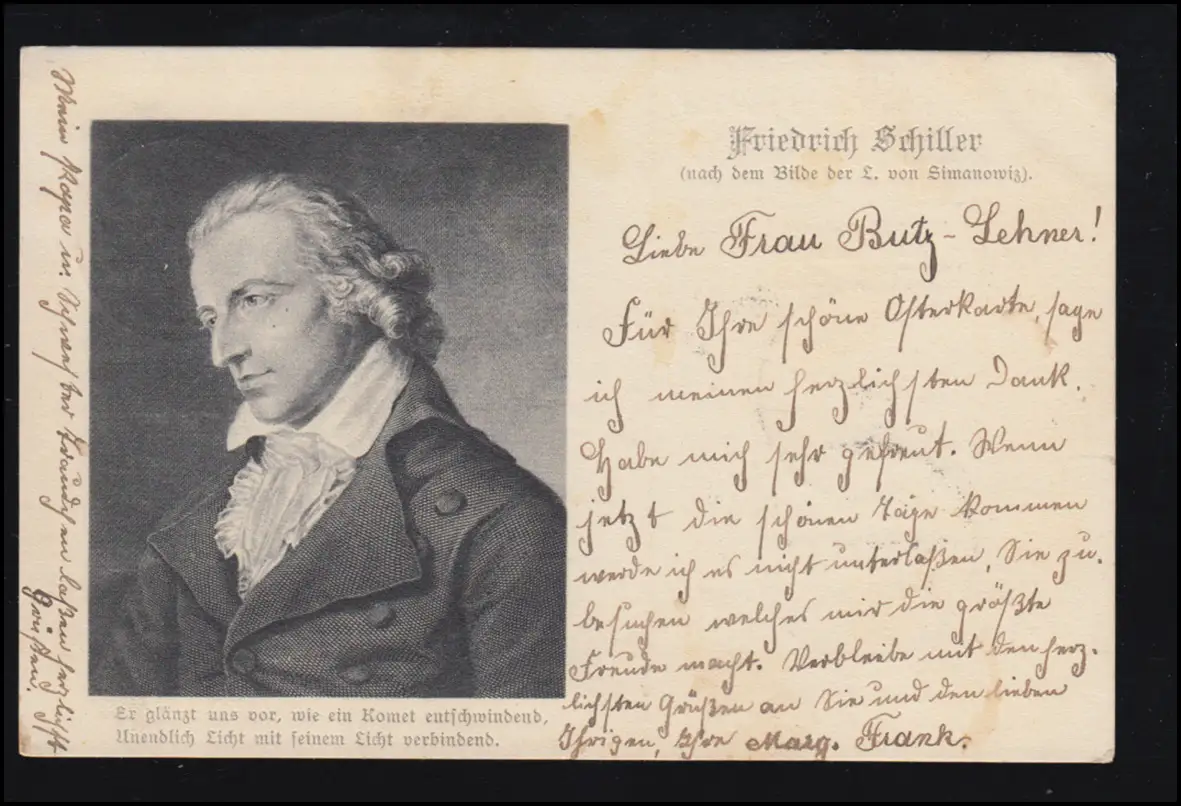 Friedrich Schiller
(nach dem Bilde der L. von Simanowiz).
Liebe Frau Butz-Lehner!
Für Ihre schöne Osterkarte, sage
ich meinen herzlichsten Dank.
Habe mich sehr gefreut. Wenn
jetzt die schönen Tage kommen
werde ich es nicht unterlaßen, Sie zu
besuchen welches mir die größte
Freude macht. Verbleibe mit den herz-
lichsten Grüßen an Sie und den lieben
Ihrigen, Ihre Marg. Frank.
Er glänzt uns vor, wie ein Komet entschwindend,
Unendlich Licht mit seinem Licht verbindend.
Mein Papa u. Schwester laßen herzlichst
grüßen.